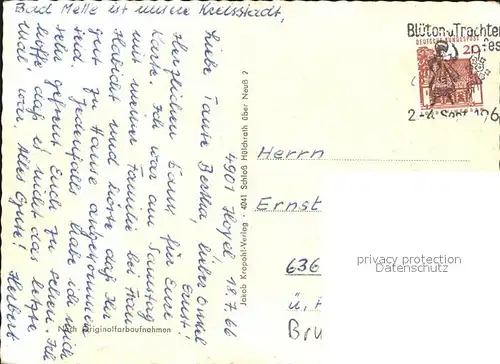 Bad Melle ist unsere Kreisstadt,
4901 Hoyel, 18.7.66
Liebe Tante Bertha, lieber Onkel
Ernst!
Herzlichen Dank für Eure
Karte. Ich war am Samstag
mit meiner Familie bei Frau
Habicht und hörte daß Ihr
gut zu Hause angekommen
seid. Jedenfalls habe ich mich
sehr gefreut Euch zu sehen. Ich
hoffe daß es nicht das letzte
mal war. Alles Gute!
Herbert
Nach Originalfarbaufnahmen
Jakob Krapohl-Verlag · 4041 Schloß Hülchrath über Neuß 2
Blüten- u. Trachten
fes
DEUTSCHE BUNDESPOST
20
2.-4. Sept. 196
Herrn
Ernst
636
ü.
Bru
privacy protection
copyright protected